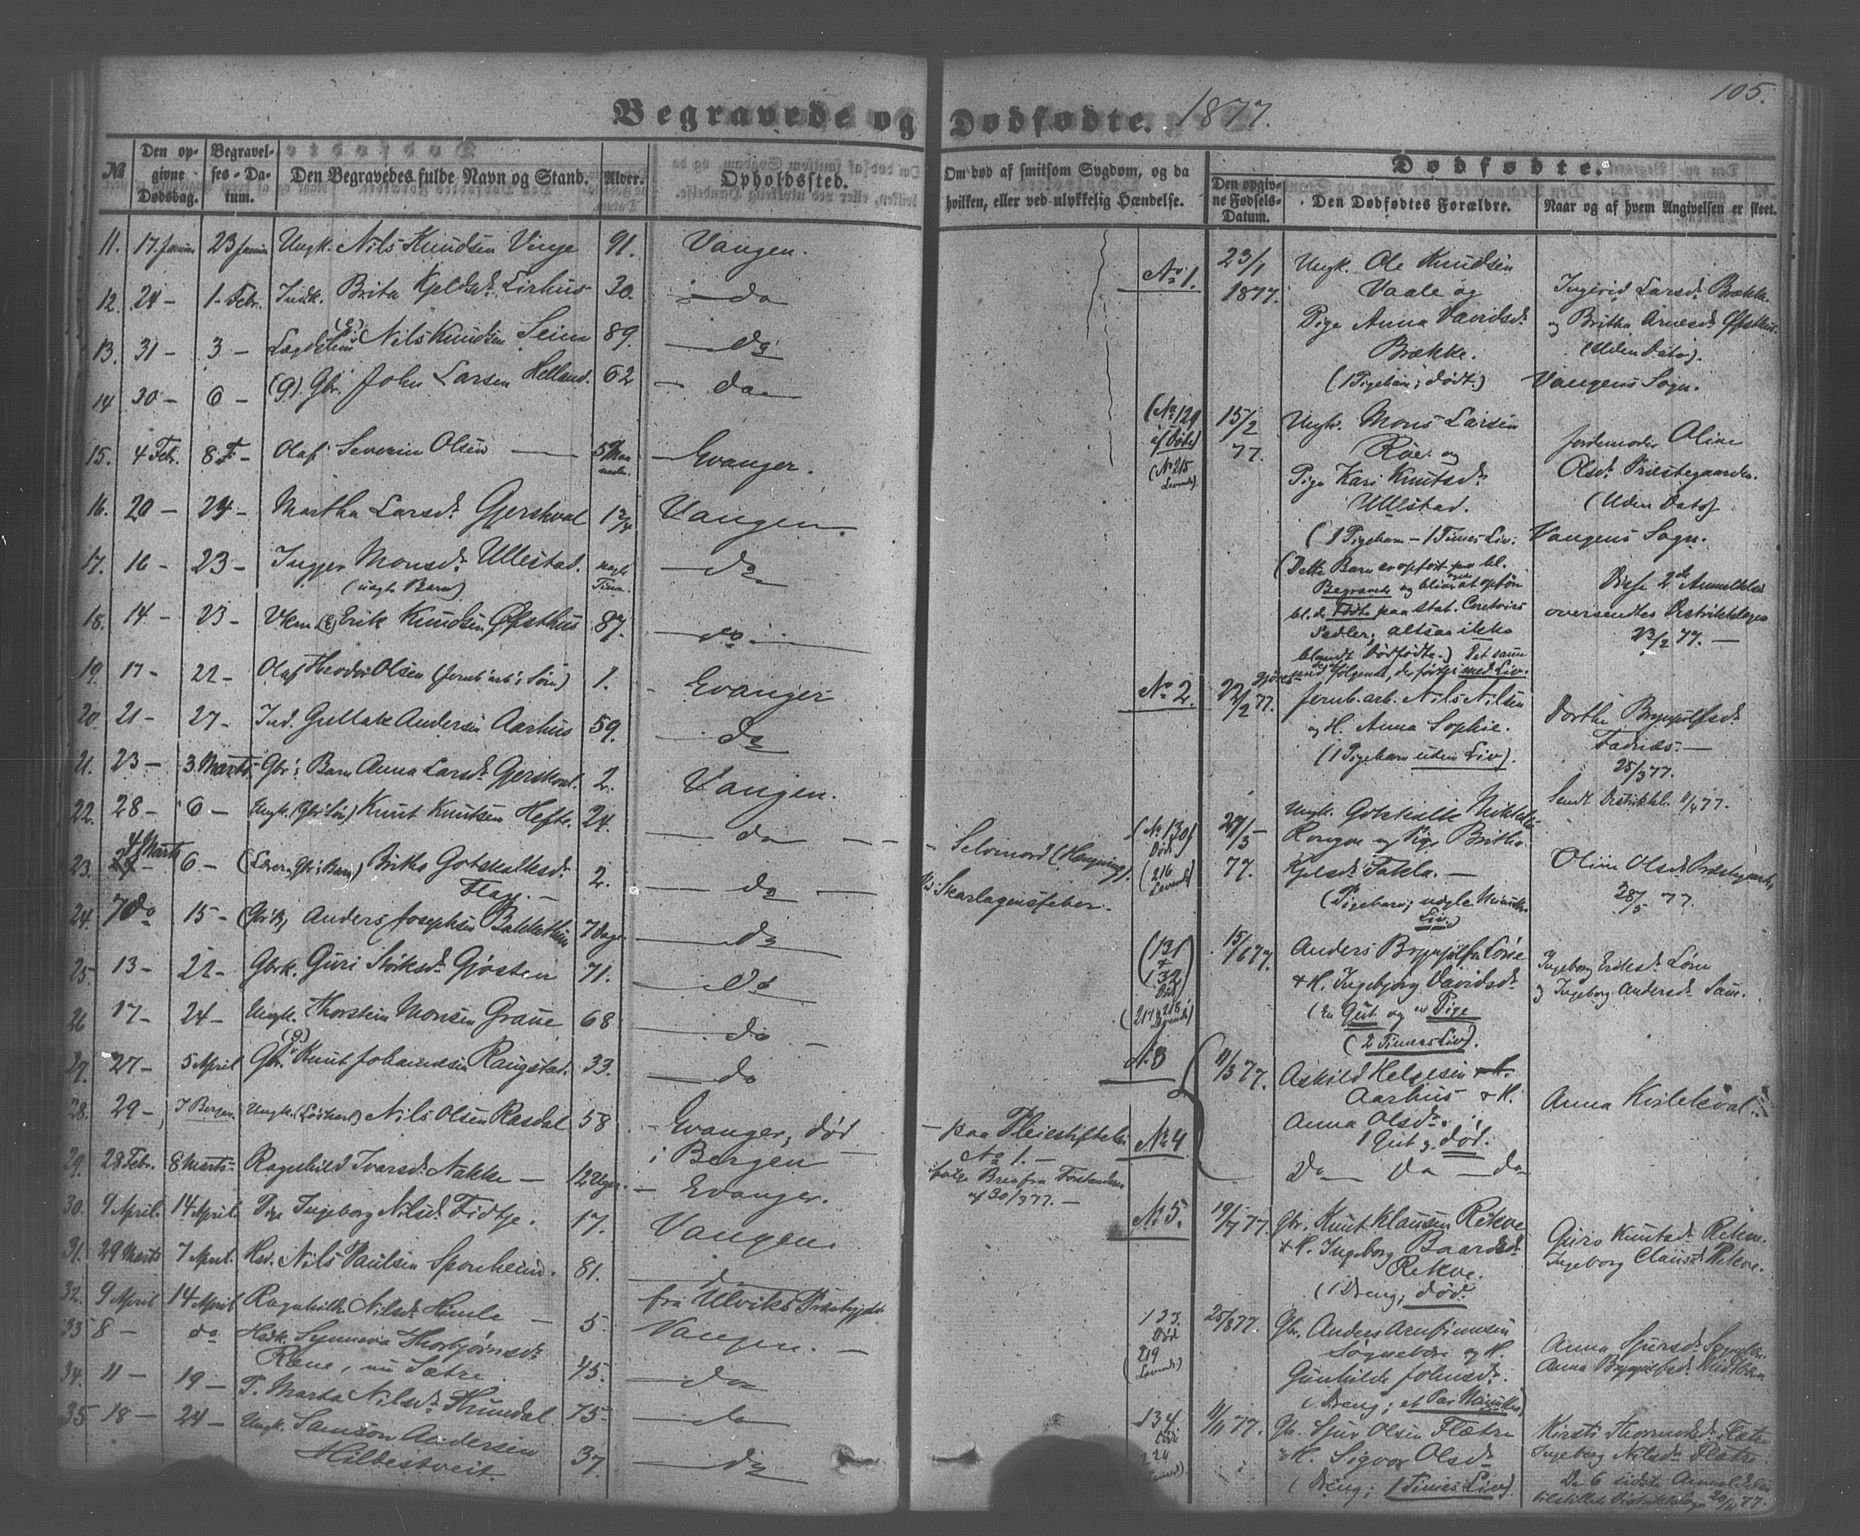 105.
Begravede og Dødfødte. 1877.
№
Den opgivne Dødsdag.
Begravelses-Datum.
Den Begravedes fulde Navn og Stand.
Alder.
Opholdssted.
Om død af smitsom Sygdom, og da hvilken, eller ved ulykkelig Hændelse.
Dødfødte.
Den opgivne Fødsels-Datum.
Den Dødfødtes Forældre.
Naar og af hvem Angivelsen er skeet.
11. 17. Januar 23 Januar Ungk. Nils Knudsen Vinje 91. Vangen.
12. 24 - 1. Febr. Indk. Brita Lirhus 30. do
13. 31 - 3 - Nils Knudsen Seim 89. do
14 30 - 6 - (g). Gbr. John Larsen Helland. 62 - do
15. 4 Febr. 8 F - Olaf Severin Olsen 5 Maaneder. Evanger.
16. 20 - 24 - Martha Larsd. Gjershval 1 3/4 Vangen
17. 16 - 23 - Ingger Monsd. Ullestad. nogle Timer do
(uægte Barn)
18. 14 - 23 - Erik Knudsen Øfsthus 87. do
19. 17 - 22 - Olaf Theodor Olsen (Jernb. arb.s Søn) 1. Evanger
20. 21 - 27 - Ind. Gullak Andersen Aarhus 59. do
21. 23 - 3 Marts - Gbr.s Barn Anna Larsd. Gjershval. 2. Vangen.
22. 28 - 6 - Ungk. (Gbr. Søn) Knut Knutsen Hefte. 24. do - Selvmord (Hængning).
23. 4 Marts 6 - Britha Gotskalksd. 2. do Skarlagensfeber.
24. 7 do 15 - Anders Josephsen 7 Dage do
25. 13 - 22 - Gbrk. Guri Gjøsten 71. do
26 17 - 24 - Ungk. Thorstein Monsen Graue 68 do
27. 27 - 5 April Gbr. Knut Johannesen Raugstad. 33. do
28. 29 - I Bergen Ungk. Nils Olsen Rasdal 58 - Evanger, død i Bergen - paa Pleiestiftelsen
No 1. -
ifølge Brev fra Forstanderen
af 30/3 77. -
29. 28 Febr. 8 Marts - Ragnhild Ivarsd. Nakke - 12 Uger. - Evanger.
30. 9 April. 14 April. Pige Ingeborg Nilsd. Fidtje. 17. Vangen.
31. 29 Marts 7 April. Nils Paulsen Sponheim. 81. do
32. 9 April 14 April Ragnhild Nilsd. Himle - 5. fra Ulviks Præstegjeld
33 8 - do Synneva Thorbjørnsd. Vangen. -
Røne, nu Sætre 45.
34. 11 - 19 - P. Marta Nilsd. Hundal. 75 - do
35 18 - 24 - Ungk. Samson Andersen
Hildestveit 37. do
No 1. 23/1 1877. Ungk. Ole Knudsen
Vaale og
Pige Anna Davidsd.
Brække.
(1 Pigebarn; dødt.)
Ingerid Larsd. Brække.
og Britha Arnesd. Øfsthus
(Uden Dato).
Vangens Sogn.
(No 129
af Døde)
(No 215
Levende)
15/2 77. Ungk. Mons Larsen
Røe og
Pige Kari Knutsd.
Ullestad.
(1 Pigebarn - 1 Times Liv.
Jordemoder Oline
Olsd. Præstegaarden.
(Uden Dato)
Vangens Sogn.
(Dette Barn er opført paa bl.
Begravede og bliver at opføre
bl. d. Fødte paa stat.
Sedler; altsaa ikke
blandt Dødfødte.)
Disse 2de Anmeldelser
oversendtes Distriktslægen
23/2 77. -
No 2. 22/2 77. Jernb. arb. Nils Nilsen
og H. Anna Sophie.
(1 Pigebarn uden Liv).
Dorthe Brynjulfsd.
25/3 77.
Sendt Distriktsl.
(No 130
Døde
(216
Levende)
77. Ungk. Gotskalk
Rongve og Pige Britha
Takla. -
(Pigebarn; nogle Minutters
Liv)
Oline Olsd. Præstegaarden
28/5 77.
(131
+
132)
Død
15/6 77. Anders Brynjulfs. Lørje
+ H. Ingebjørg Davidsd.
(En Gut og en Pige
(2 Timers Liv).
Ingeborg Eriksd. Lørje
og Ingeborg Andersd. Sam.
No 3 Askild Helgesen
Aarhus + H.
Anna Olsd.
1 Gut, død.
Anna Kvilekval
No 4 Do Do - do
No 5. 19/7 77. Gbr. Knut Klausen Rekve
+ H. Ingeborg Baardsd.
Rekve.
(1 Dreng; død.
Guro Knutsd. Rekve.
Ingeborg Clausd. Rekve.
133.
Død
(219
Levende)
25/8 77. Gbr. Anders Arnfinnsen
og H.
Gunhilde Johnsd.
(Dreng; et Par Minutter)
Anna Sjursd.
Anna Brynjulfsd.
134.
Død
224
Levende).
77. Gbr. Sjur Olsen Flætre
+ H. Sigvor Olsd.
(Dreng; 1 Times Liv)
Kirsti Thormodsd. Flætre
Ingeborg Nilsd. Flætre.
De 6 sidste Anmeldelser
tilstillede Distriktslægen